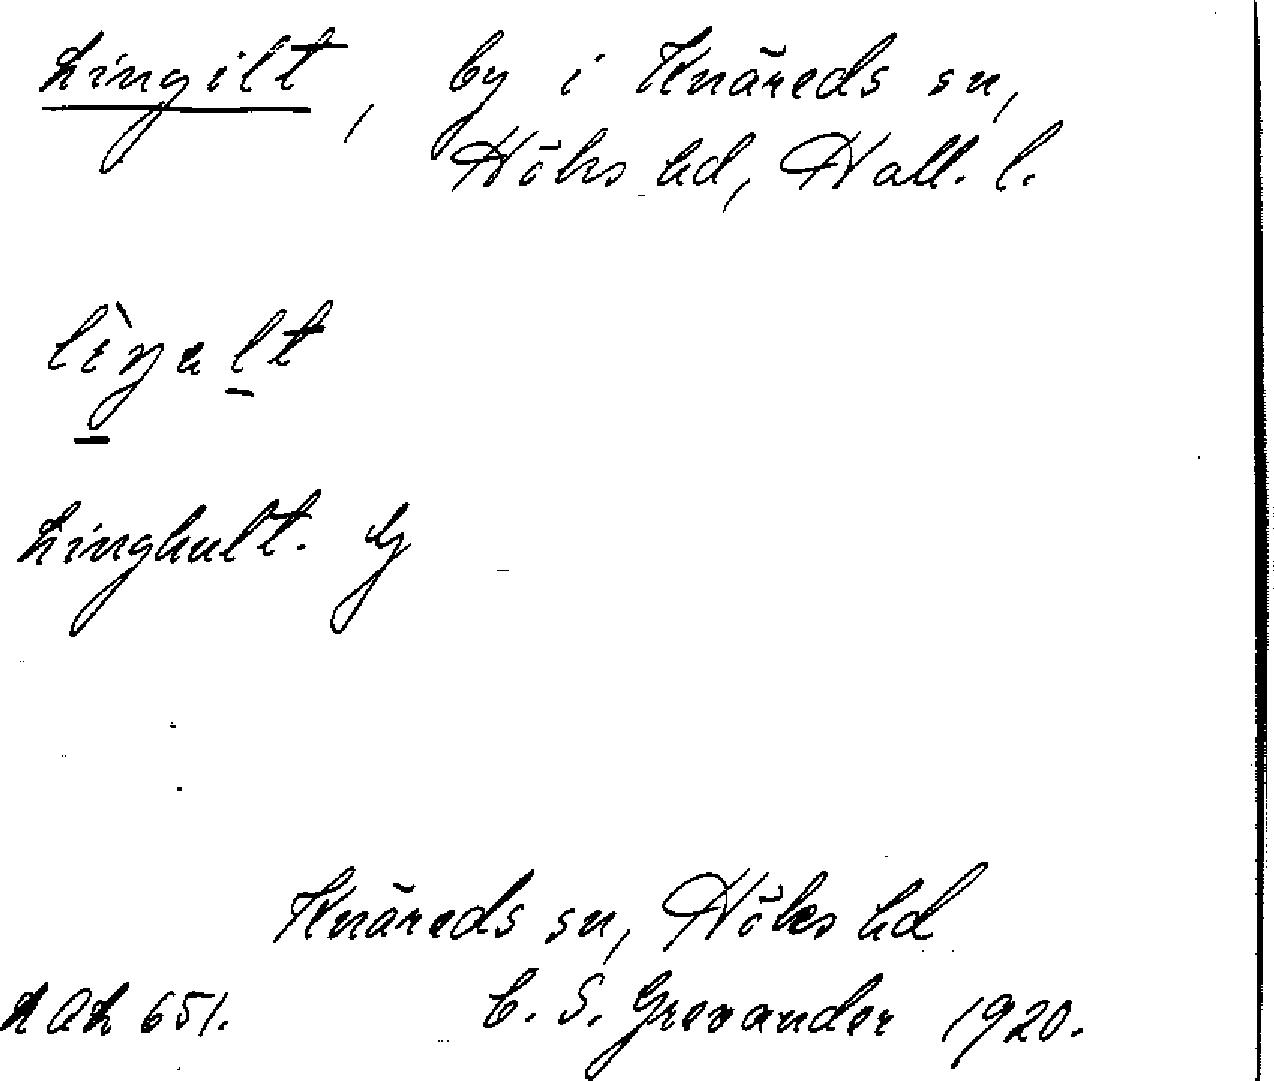 Lingilt, by i Knäreds sn,
Höks hd, Hall. l.
Linghult. by
Knäreds sn, Höks hd
LAL 651. C. S. Grevander 1920.